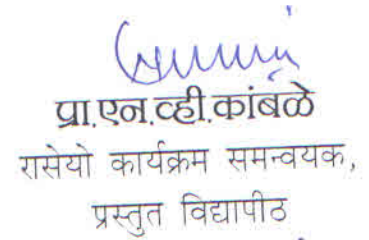 प्रा.एन.व्ही.कांबळे
रासेयो कार्यक्रम समन्वयक,
प्रस्तुत विद्यापीठ